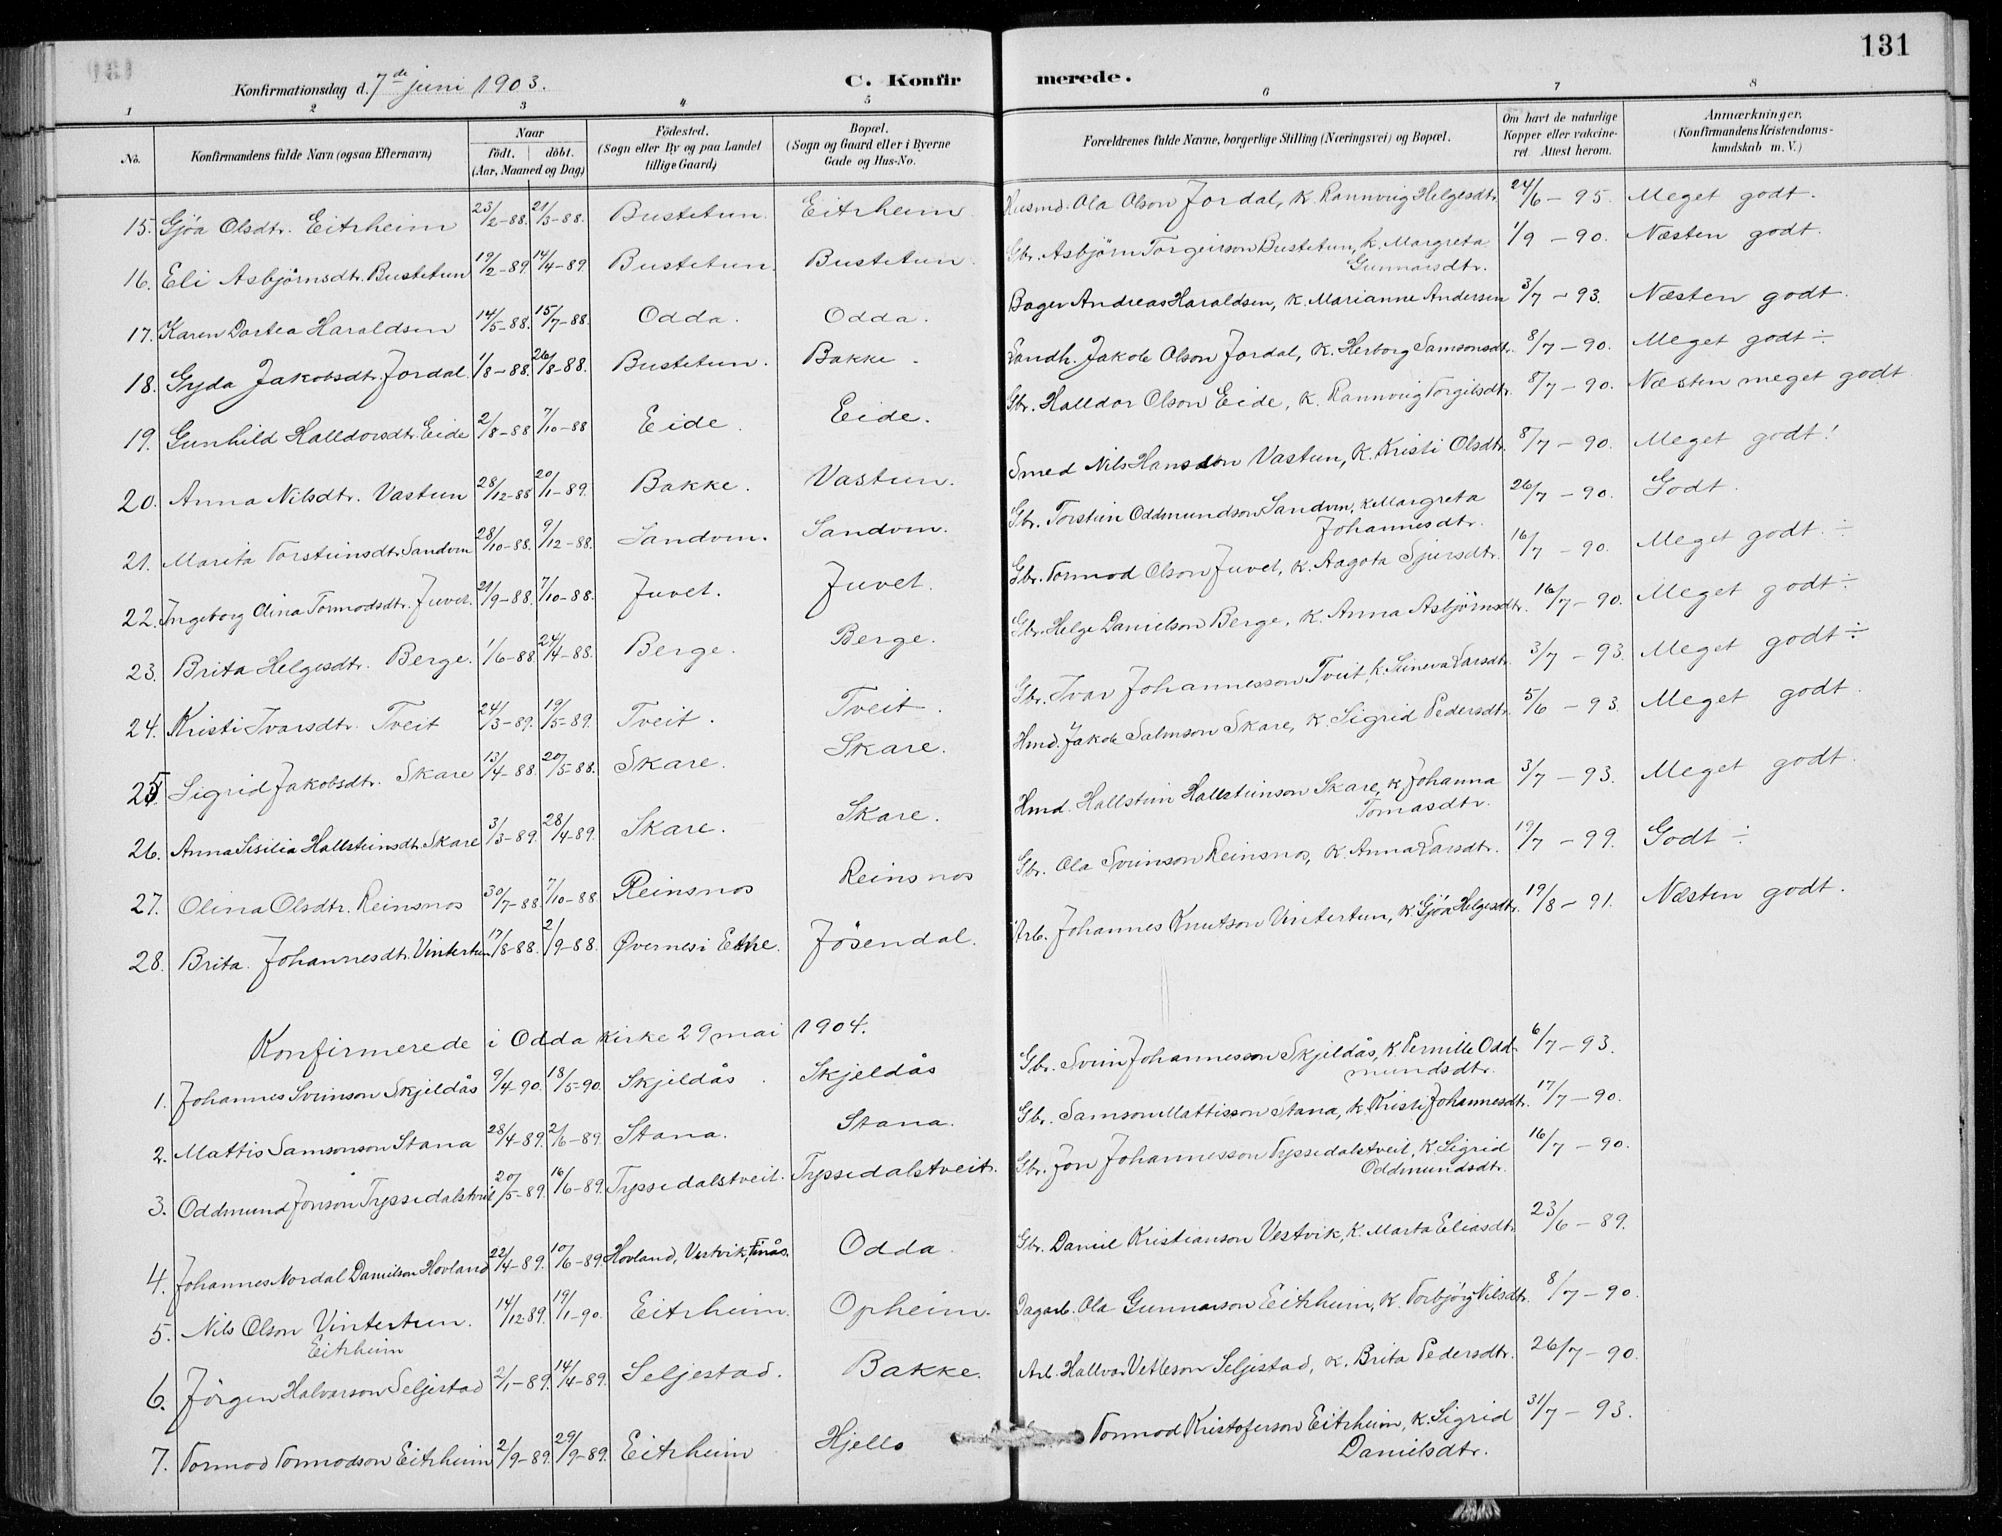 131
Konfirmationsdag d. 7de juni 1903.
C. Konfirmerede.
1 2 3 4 5 6 7 8
No. Konfirmandens fulde Navn (ogsaa Efternavn) Naar födt. döbt. (Aar, Maaned og Dag) Födested. (Sogn eller By og paa Landet tillige Gaard) Bopæl. (Sogn og Gaard eller i Byerne Gade og Hus-No. Forældrenes fulde Navne, borgerlige Stilling (Næringsvei) og Bopæl. Om havt de naturlige Kopper eller vakcineret. Attest herom. Anmærkninger, (Konfirmandens Kristendomskundskab m. V.)
15. Gjöa Olsdtr. Eitrheim 23/2-88. 21/3-88. Bustetun. Eitrheim. Husmd. Ola Olson Jordal, K. Rannveig Helgesdtr. 24/6-95. Meget godt.
16. Eli Asbjörnsdtr. Bustetun 19/2-89. 14/4-89. Bustetun. Bustetun. Gbr. Asbjörn Torgeirson Bustetun, k. Margreta Gunnarsdtr. 1/9-90. Næsten godt.
17. Karen Dortea Haraldsen 14/5-88. 15/7-88. Odda. Odda. Bager Andreas Haraldsen, K. Marianne Andersen 3/7-93. Næsten godt.
18. Gyda Jakobsdtr. Jordal. 1/8-88. 26/8-88. Bustetun. Bakke. Landh. Jakob Olson Jordal, K. Herborg Samsonsdtr. 8/7-90. Meget godt ÷
19. Gunhild Halldorsdtr. Eide 2/8-88 7/10-88 Eide. Eide. Gbr. Halldor Olson Eide, K. Rannveig Torgilsdtr. 8/7-90. Næsten meget godt
20. Anna Nilsdtr. Vastun 28/12-88 20/1-89. Bakke. Vastun. Smed Nils Hansson Vastun, K. Kristi Olsdtr. 8/7-90. Meget godt!
21. Marita Torsteinsdtr. Sandven 28/10-88. 9/12-88. Sandven. Sandven. Gbr. Torstein Oddmundson Sandven, K. Margreta Johannesdtr. 26/7-90. Godt.
22. Ingeborg Olina Tormodsdtr. Juvet. 21/9-88. 7/10-88. Juvet. Juvet. Gbr. Tormod Olson Juvet, K. Aagota Sjursdtr. 16/7-90. Meget godt. ÷
23. Brita Helgesdtr. Berge. 1/6-88. 24/4-88. Berge. Berge. Gbr. Helge Danielson Berge, K. Anna Asbjörnsdtr. 16/7-90. Meget godt ÷
24. Kristi Ivarsdtr. Tveit 24/3-89. 19/5-89. Tveit. Tveit. Gbr. Ivar Johannesson Tveit, k. Seneva Larsdtr. 3/7-93. Meget godt ÷
25. Sigrid Jakobsdtr. Skare 13/4-88. 20/5-88. Skare. Skare. Hmd. Jakob Salmson Skare, K. Sigrid Pedersdtr. 5/6-93 Meget godt.
26. Anna Sisilia Hallsteinsdtr. Skare 3/3-89. 28/4-89. Skare. Skare. Hmd. Hallstein Hallsteinson Skare, K. Johanna Tomasdtr. 3/7-93. Meget godt.
27. Olina Olsdtr. Reinsnos 30/7-88. 7/10-88. Reinsnos Reinsnos Gbr. Ola Sveinson Reinsnos, K. Anna Larsdtr. 19/7-99. Godt ÷
28. Brita Johannesdtr. Vintertun 17/8-88. 2/9-88. Øvernes i Etne. Jösendal. Arb. Johannes Knutson Vintertun, K. Gjöa Helgesdtr. 19/8-91. Næsten godt.
Konfirmerede i Odda kirke 29 mai 1904.
1. Johannes Sveinson Skjeldås 9/4-90. 18/5-90. Skjeldås. Skjeldås Gbr. Svein Johannesson Skjeldås, K. Pernille Oddmundsdtr. 6/7-93.
2. Mattis Samsonson Stana 28/4-89. 2/6-89. Stana. Stana. Gbr. Samson Mattisson Stana, K. Kristi Johannesdtr. 17/7-90.
3. Oddmund Jonson Tyssedalstveit 20/5-89. 16/6-89. Tyssedalstveit. Tyssedalstveit. Gbr. Jon Johannesson Tyssedalstveit, K. Sigrid Oddmundsdtr. 16/7-90.
4. Johannes Nordal Danielson Hovland 22/4-89. 10/6-89. Hovland, Vestvik, Finås. Odda. Gbr. Daniel Kristianson Vestvik, K. Marta Eliasdtr. 23/6-89.
5. Nils Olson Vintertun. Eitrheim 14/12 89. 19/1-90. Eitrheim. Opheim. Dagarb. Ola Gunnarson Eitrheim, K. Torbjörg Nilsdtr. 8/7-90.
6. Jörgen Halvarson Seljestad 2/1-89. 14/4-89. Seljestad. Bakke. Arb. Hallvar Vetleson Seljestad, K. Brita Pedersdtr. 26/7-90.
7. Tormod Tormodson Eitrheim 2/9-89. 29/9-89. Eitrheim Hjello Tormod Kristoferson Eitrheim, K. Sigrid Danielsdtr. 31/7-93.